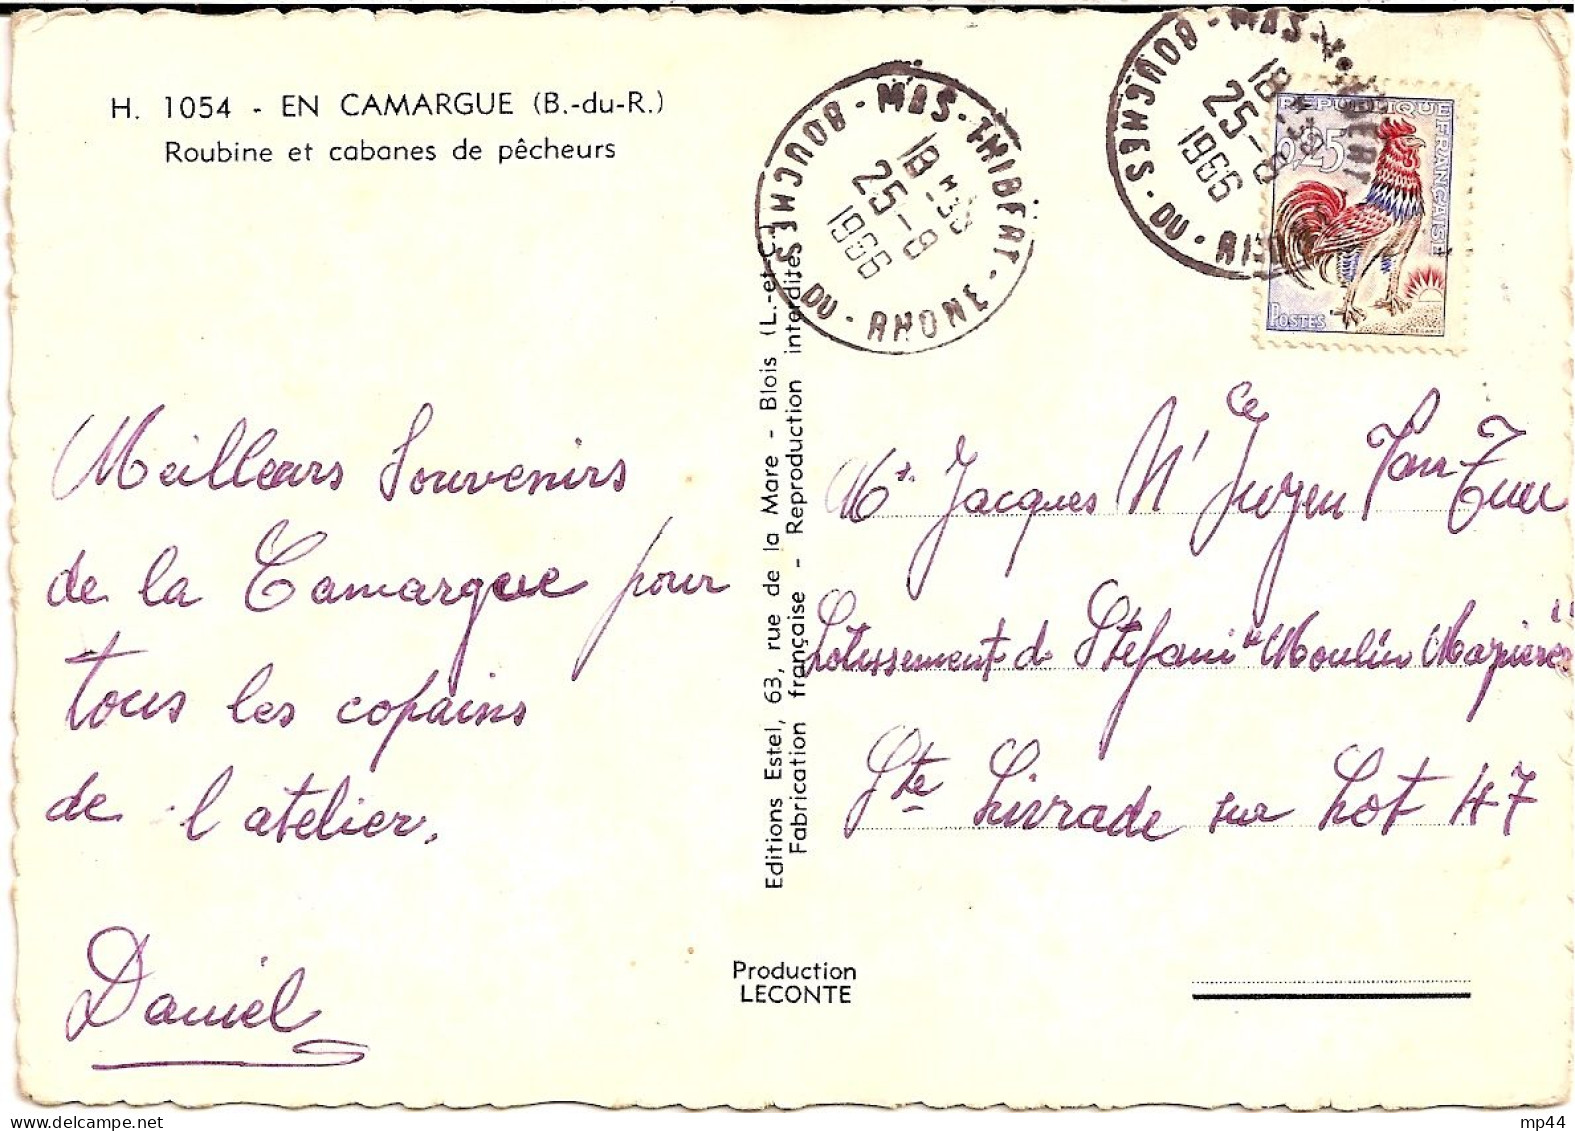 H. 1054 - EN CAMARGUE (B.-du-R.)
Roubine et cabanes de pêcheurs
MAS-THIBERT - BOUCHES - DU - RHONE
18 H 30
25-8
1966
BOUCHES - DU -
18 H 30
25-8
1966
REPUBLIQUE FRANÇAISE
0,25
POSTES
Meilleurs Souvenirs
de la Camargue pour
tous les copains
de l'atelier,
Daniel
Editions Estel, 63, rue de la Mare - Blois (L.-et-C.)
Fabrication française - Reproduction interdites
Mr. Jacques N'
Lotissement de Stefani "Moulin
Ste Livrade sur Lot 47
Production
LECONTE
mp44